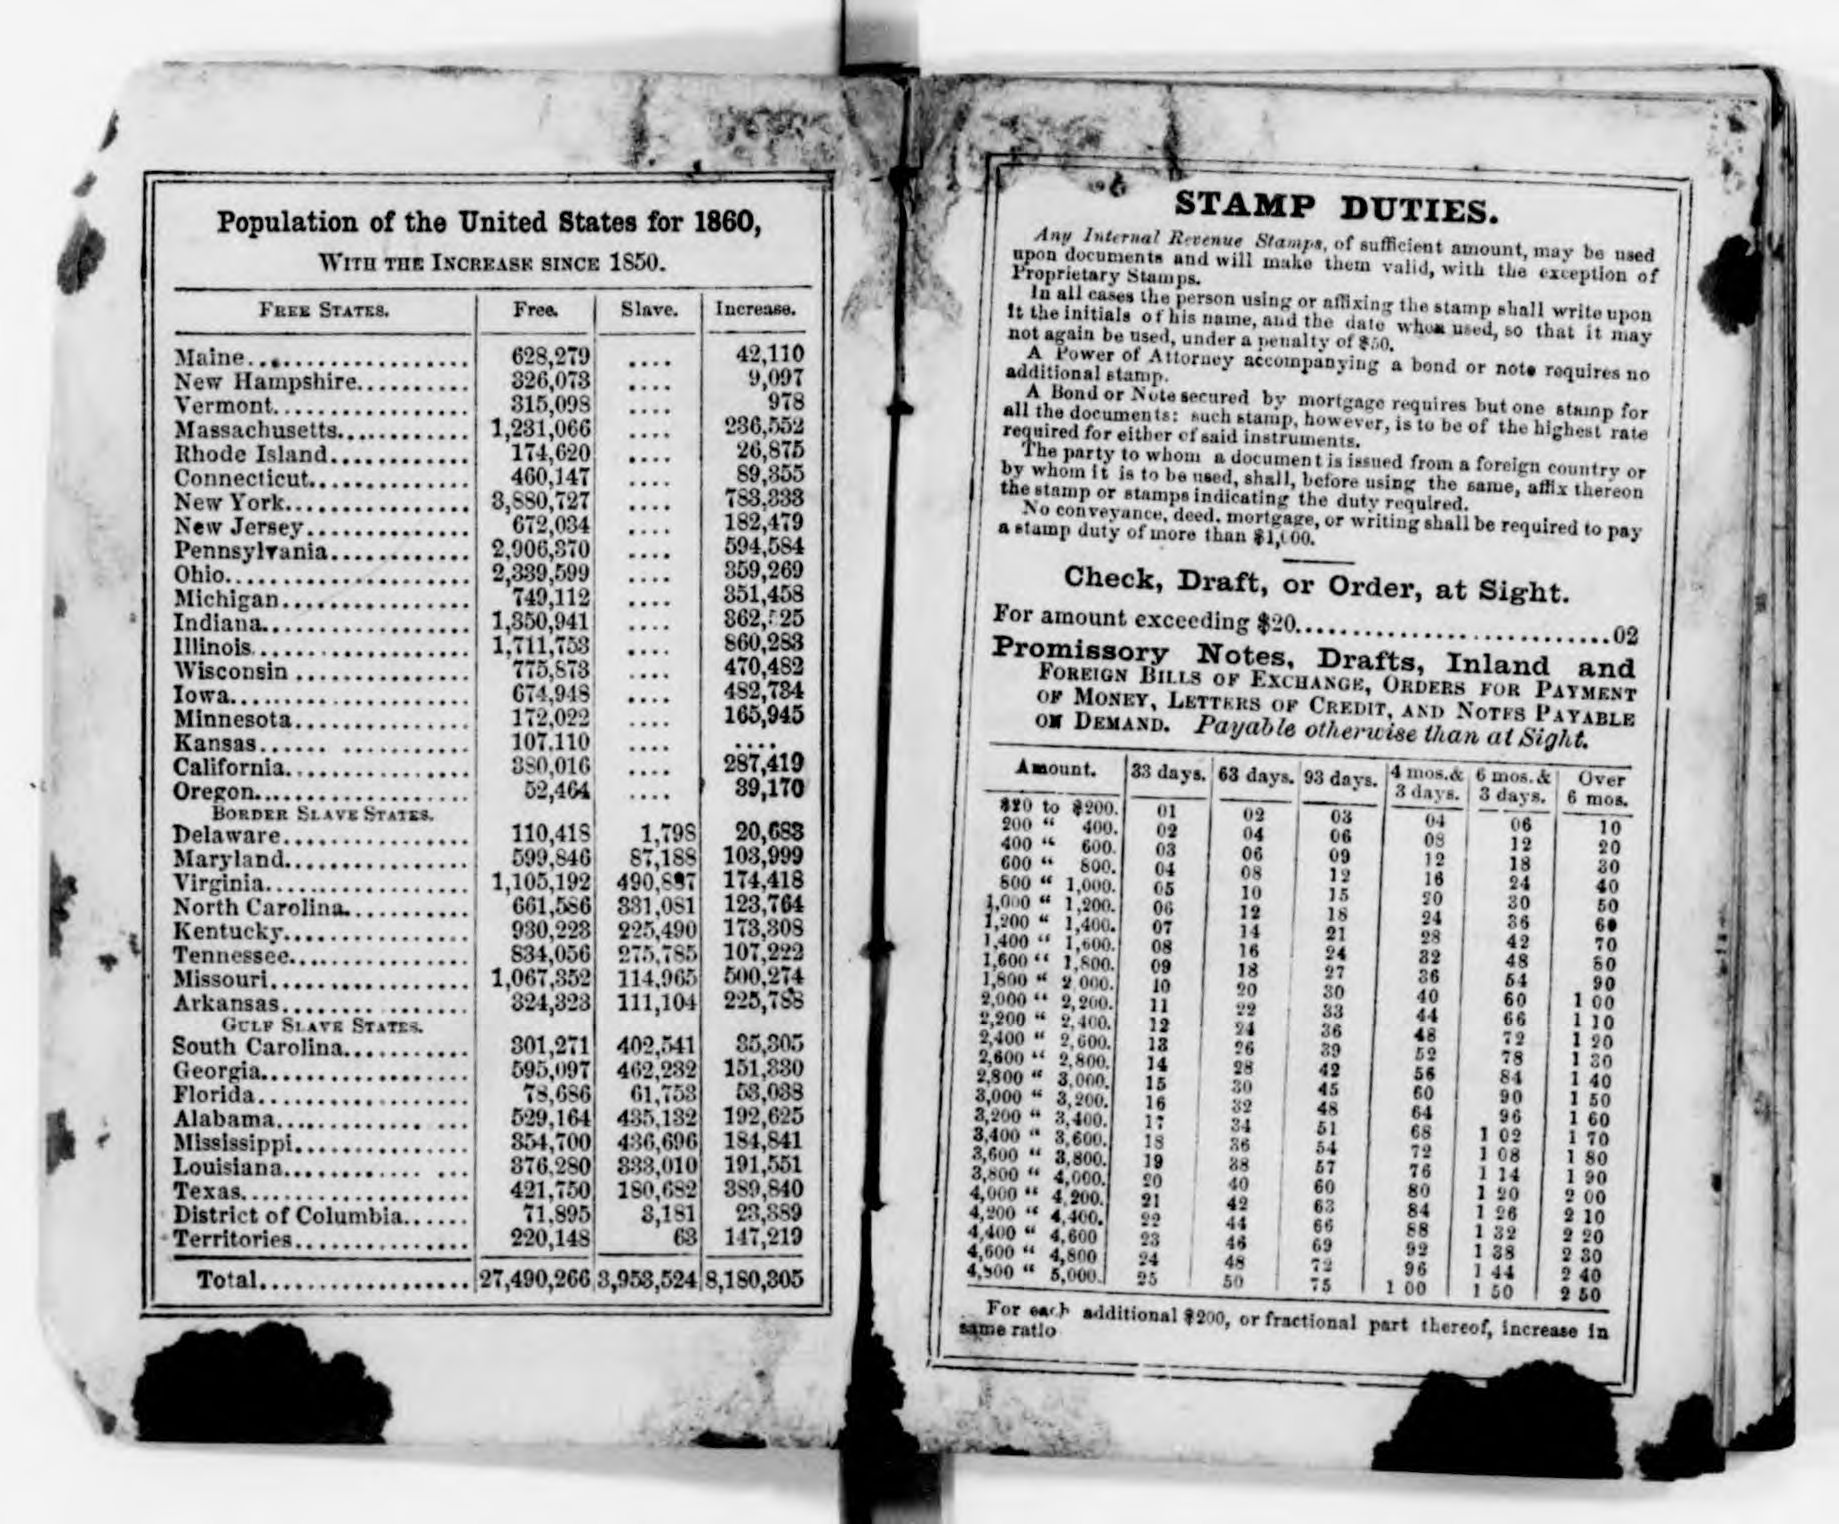 Population of the United States for 1860,
WITH THE INCREASE SINCE 1850.
FREE STATES. Free. Slave. Increase.
Maine.................. 628,279 .... 42,110
New Hampshire.......... 326,073 .... 9,097
Vermont................ 315,098 .... 978
Massachusetts............ 1,231,066 .... 236,552
Rhode Island............ 174,620 .... 26,875
Connecticut.............. 460,147 .... 89,355
New York................ 3,880,727 .... 783,333
New Jersey.............. 672,034 .... 182,479
Pennsylvania............ 2,906,370 .... 594,584
Ohio...................... 2,339,599 .... 359,269
Michigan................ 749,112 .... 351,458
Indiana.................. 1,350,941 .... 362,525
Illinois.................. 1,711,753 .... 860,283
Wisconsin .............. 775,873 .... 470,482
Iowa.................... 674,948 .... 482,734
Minnesota.............. 172,022 .... 165,945
Kansas...... ............ 107,110 .... ....
California................ 380,016 .... 287,419
Oregon.................. 52,464 .... 39,170
BORDER SLAVE STATES.
Delaware................ 110,418 1,798 20,683
Maryland................ 599,846 87,188 103,999
Virginia.................. 1,105,192 490,887 174,418
North Carolina........... 661,586 331,081 123,764
Kentucky................ 930,223 225,490 173,308
Tennessee................ 834,056 275,785 107,222
Missouri.................. 1,067,352 114,965 500,274
Arkansas......... ....... 324,323 111,104 225,788
GULF SLAVE STATES.
South Carolina........... 301,271 402,541 35,305
Georgia.................. 595,097 462,232 151,330
Florida.................. 78,686 61,753 53,038
Alabama............. ... 529,164 435,132 192,625
Mississippi................ 354,700 436,696 184,841
Louisiana........... ... ... 376,280 333,010 191,551
Texas.................... 421,750 180,682 389,840
District of Columbia...... 71,895 3,181 23,389
Territories................ 220,148 63 147,219
Total.................. 27,490,266 3,953,524 8,180,305
STAMP DUTIES.
Any Internal Revenue Stamps, of sufficient amount, may be used
upon documents and will make them valid, with the exception of
Proprietary Stamps.
In all cases the person using or affixing the stamp shall write upon
it the initials of his name, and the date when used, so that it may
not again be used, under a penalty of $50.
A Power of Attorney accompanying a bond or note requires no
additional stamp.
A Bond or Note secured by mortgage requires but one stamp for
all the documents: such stamp, however, is to be of the highest rate
required for either of said instruments.
The party to whom a document is issued from a foreign country or
by whom it is to be used, shall, before using the same, affix thereon
the stamp or stamps indicating the duty required.
No conveyance, deed, mortgage, or writing shall be required to pay
a stamp duty of more than $1,000.
Check, Draft, or Order, at Sight.
For amount exceeding $20..............................02
Promissory Notes, Drafts, Inland and
FOREIGN BILLS OF EXCHANGE, ORDERS FOR PAYMENT
OF MONEY, LETTERS OF CREDIT, AND NOTES PAYABLE
ON DEMAND. Payable otherwise than at Sight.
Amount. 33 days. 63 days. 93 days. 4 mos.& 3 days. 6 mos.& 3 days. Over 6 mos.
$20 to $200. 01 02 03 04 06 10
200 " 400. 02 04 06 08 12 20
400 " 600. 03 06 09 12 18 30
600 " 800. 04 08 12 16 24 40
800 " 1,000. 05 10 15 20 30 50
1,000 " 1,200. 06 12 18 24 36 60
1,200 " 1,400. 07 14 21 28 42 70
1,400 " 1,600. 08 16 24 32 48 80
1,600 " 1,800. 09 18 27 36 54 90
1,800 " 2,000. 10 20 30 40 60 1 00
2,000 " 2,200. 11 22 33 44 66 1 10
2,200 " 2,400. 12 24 36 48 72 1 20
2,400 " 2,600. 13 26 39 52 78 1 30
2,600 " 2,800. 14 28 42 56 84 1 40
2,800 " 3,000. 15 30 45 60 90 1 50
3,000 " 3,200. 16 32 48 64 96 1 60
3,200 " 3,400. 17 34 51 68 1 02 1 70
3,400 " 3,600. 18 36 54 72 1 08 1 80
3,600 " 3,800. 19 38 57 76 1 14 1 90
3,800 " 4,000. 20 40 60 80 1 20 2 00
4,000 " 4,200. 21 42 63 84 1 26 2 10
4,200 " 4,400. 22 44 66 88 1 32 2 20
4,400 " 4,600 23 46 69 92 1 38 2 30
4,600 " 4,800 24 48 72 96 1 44 2 40
4,800 " 5,000. 25 50 75 1 00 1 50 2 50
For each additional $200, or fractional part thereof, increase in
same ratio